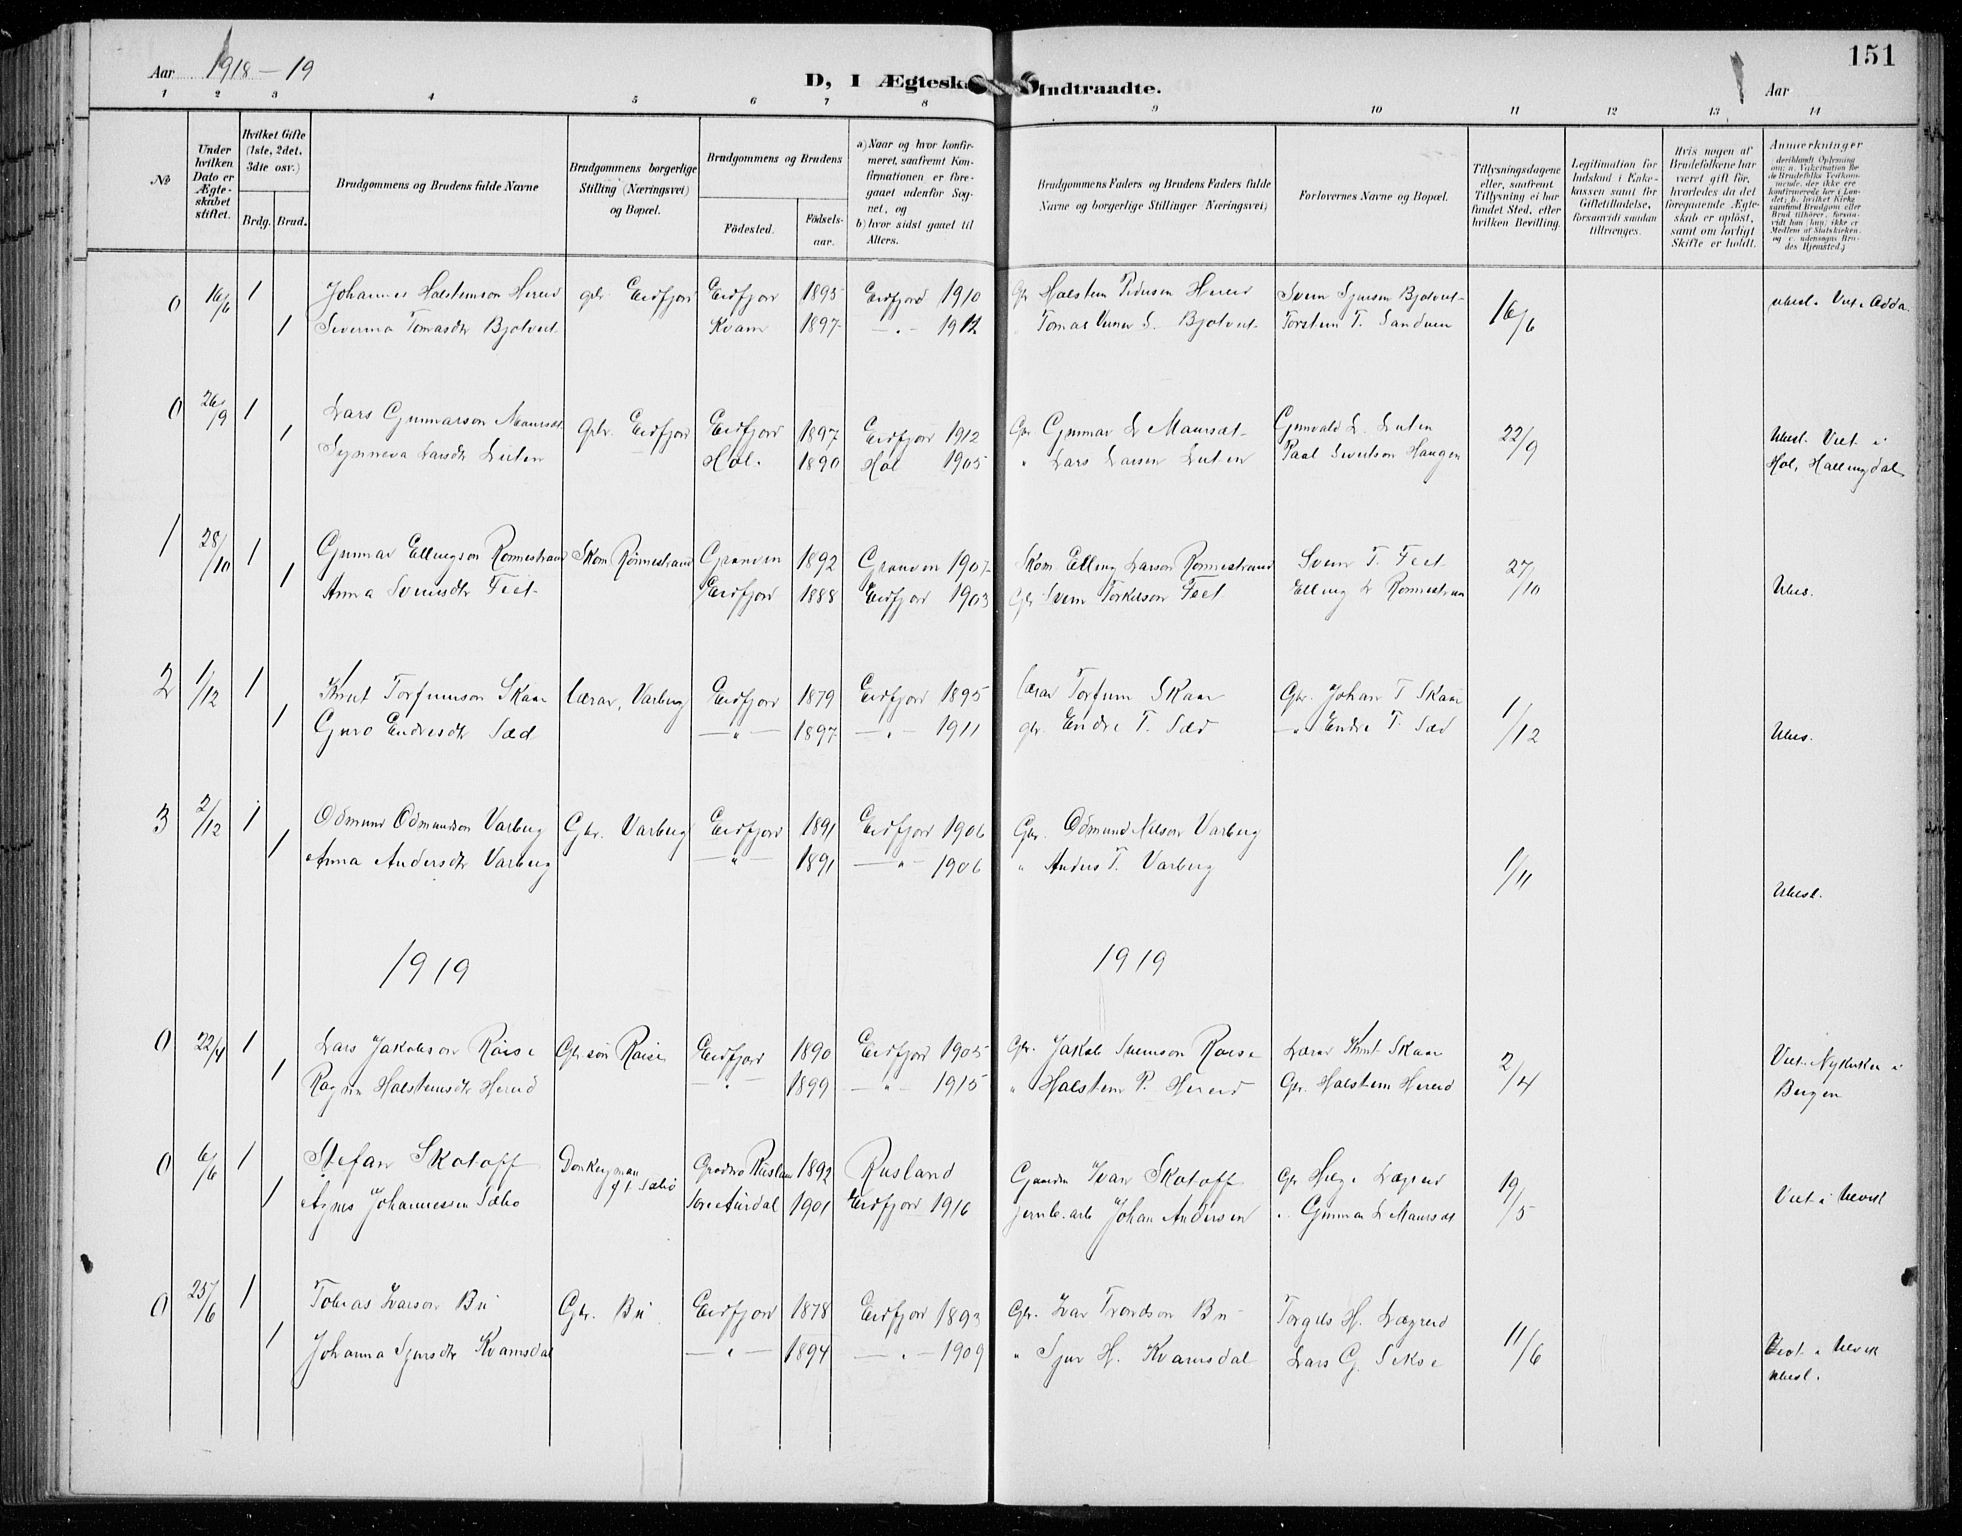 151
Aar 1918-19
D, I Ægtesk
Indtraadte.
Aar
1 2 3 4 5 6 7 8 9 10 11 12 13 14
No
Under hvilken Dato er Ægteskabet stiftet.
Hvilket Gifte (1ste, 2det, 3die osv.)
Brdg. Brud.
Brudgommens og Brudens fulde Navne
Brudgommens borgerlige Stilling (Næringsvei) og Bopæl.
Brudgommens og Brudens
Födested. Födsels-aar.
a) Naar og hvor konfirmeret, saafremt Konfirmationen er foregaaet udenfor Sognet, og
b) hvor sidst gaaet til Alters.
Brudgommens Faders og Brudens Faders fulde Navne og borgerlige Stillinger (Næringsvei)
Forlovernes Navne og Bopæl.
Tillysningsdagene eller, saafremt Tillysning ei har fundet Sted, efter hvilken Bevilling.
Legitimation for Indskud i Enkekassen samt for Giftetilladelse, forsaavidt saadan tiltrænges.
Hvis nogen af Brudefolkene har været gift før, hvorledes da det foregaaende Ægteskab er opløst, samt om lovligt Skifte er holdt.
Anmærkninger
0 16/6 1 Johannes Halstenson Hereid gbr Eidfjord Eidfjord 1895 Eidfjord 1910 Gbr Halstein Pedersen Hereid Svein Sjursen Bjotveit 16/6 ubesl. Viet i Odda.
1 Severina Tomasdtr Bjotveit Kvam 1897 —"— 1912 Tomas S. Bjotveit Torstein T. Sandven
0 26/9 1 Lars Gunnarson Maursæt Gbr. Eidfjord Eidfjord 1897 Eidfjord 1912 Gbr Gunnar L Maursæt Gunvald L. Luten 22/9 Ubesl. Viet i
1 Synneva Larsdtr Luten Hol. 1890 Hol 1905 " Lars Larsen Luten Paal Sevatson Haugen Hol, Hallingdal
1 28/10 1 Gunnar Ellingson Rønnestrand Skom Rønnestrand Granvin 1892 Granvin 1907 Skom Elling Larson Rønnestrand Svein T. Feet 27/10 Ubes.
1 Anna Sveinsdtr Feet Eidfjord 1888 Eidfjord 1903 Gbr Svein Torkelson Feet Elling L Rønnestrand
2 1/12 1 Knut Torfinnson Skaar Lærar, Varberg Eidfjord 1879 Eidfjord 1895 Lærar Torfinn Skaar Gbr. Johan T Skaar 1/12 Ubes.
1 Guro Endresdtr Sæd —"— 1897 —"— 1911 gbr. Endre T. Sæd —" Endre T. Sæd
3 2/12 1 Odmund Odmundson Varberg Gbr. Varberg Eidfjord 1891 Eidfjord 1906 Gbr. Odmund Nilson Varberg 1/11 Ubesl.
1 Anna Andersdtr Varberg —"— 1891 —"— 1906 " Anders T. Varberg
1919 1919
0 22/4 1 Lars Jakobson Røise Gbr søn Røise Eidfjord 1890 Eidfjord 1905 Gbr. Jakob Sveinson Røise Lærar Knut Skaar 2/4 Viet i Nykirken i
1 Ragna Halsteinsdtr Hereid —"— 1899 —"— 1915 " Halstein P. Hereid Gbr. Halstein Hereid Bergen
0 6/6 1 Stefan Skotoff Donkeyman Grodno Rusland 1892 Rusland Ivar Skotoff Gbr Helge Lægreid 19/5 Viet i Ulvik
1 Agnes Johannessen Sæbø Aurdal 1901 Eidfjord 1916 jernb.arb Johan Andersen " Gunnar L Maursæt
0 25/6 1 Tobias Ivarson Bu Gbr. Bu Eidfjord 1878 Eidfjord 1893 Gbr. Ivar Trondson Bu Torgils H. Lægreid 11/6 Viet i Ulvik
1 Johanna Sjursdtr Kvamsdal —"— 1894 —"— 1909 " Sjur H. Kvamsdal Lars G. Sekse ubesl.